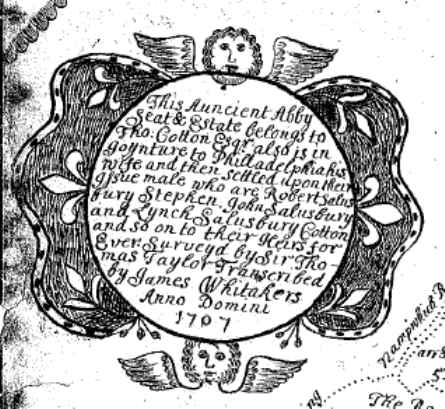 This Auncient Abby
Seat & Estate belongs to
Tho: Cotton Esqr. also is in
Joynture to Philladelphia his
wife and then settled upon their
Issue male who are Robert Salus
bury Stephen John Salusbury
and Lynch Salusbury Cotton
and so on to their Heirs for
Ever. Survey'd by Sir Tho-
mas Taylor Transcribed
by James Whitakers
Anno Domini
1707
The